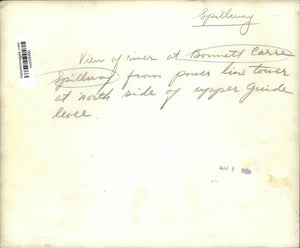 Spillway
View of river at Bonnett Carre
Spillway from power line tower
at north side of upper Guide
levee.
MAY 3